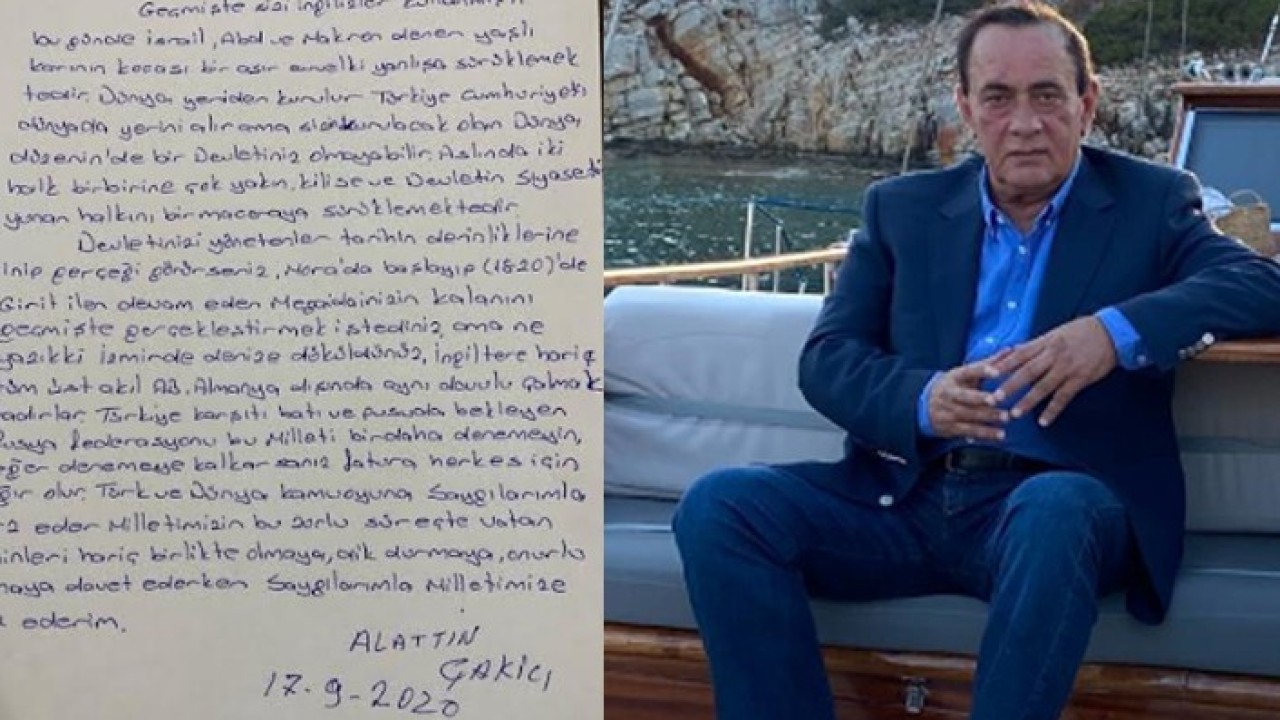 Geçmişte sizi ingilizler
bu günde ismail, Abd ve Makron denen yaşlı
karının kocası bir asır evvelki yanlışa sürüklemek
tedir. Dünya yeniden kurulur Türkiye Cumhuriyeti
dünyada yerini alır ama sizin kurulacak olan Dünya
düzenin'de bir Devletiniz olmayabilir. Aslında iki
halk birbirine çok yakın, kilise ve Devletin siyaseti
yunan halkını bir maceraya sürüklemektedir.
Devletinizi yönetenler tarihin derinliklerine
inip gerçeği görürseniz, Mora'da başlayıp (1820)'de
Girit ilen devam eden Megaideinizin kalanını
geçmişte gerçekleştirmek istediniz ama ne
yazıkki izmirde denize döküldünüz, İngiltere hariç
tüm üst akıl AB. Almanya dışında aynı davulu çalmak
tadırlar. Türkiye karşıtı batı ve pusuda bekleyen
Rusya federasyonu bu Milleti birdaha denemeyin,
eğer denemeye kalkarsanız fatura herkes için
ağır olur. Türk ve Dünya kamuoyuna Saygılarımla
eder Milletimizin bu zorlu süreçte vatan
hainleri hariç birlikte olmaya, dik durmaya, onurlu
maya davet ederken Saygılarımla Milletimize
ederim.
ALATTİN
ÇAKICI
17-9-2020